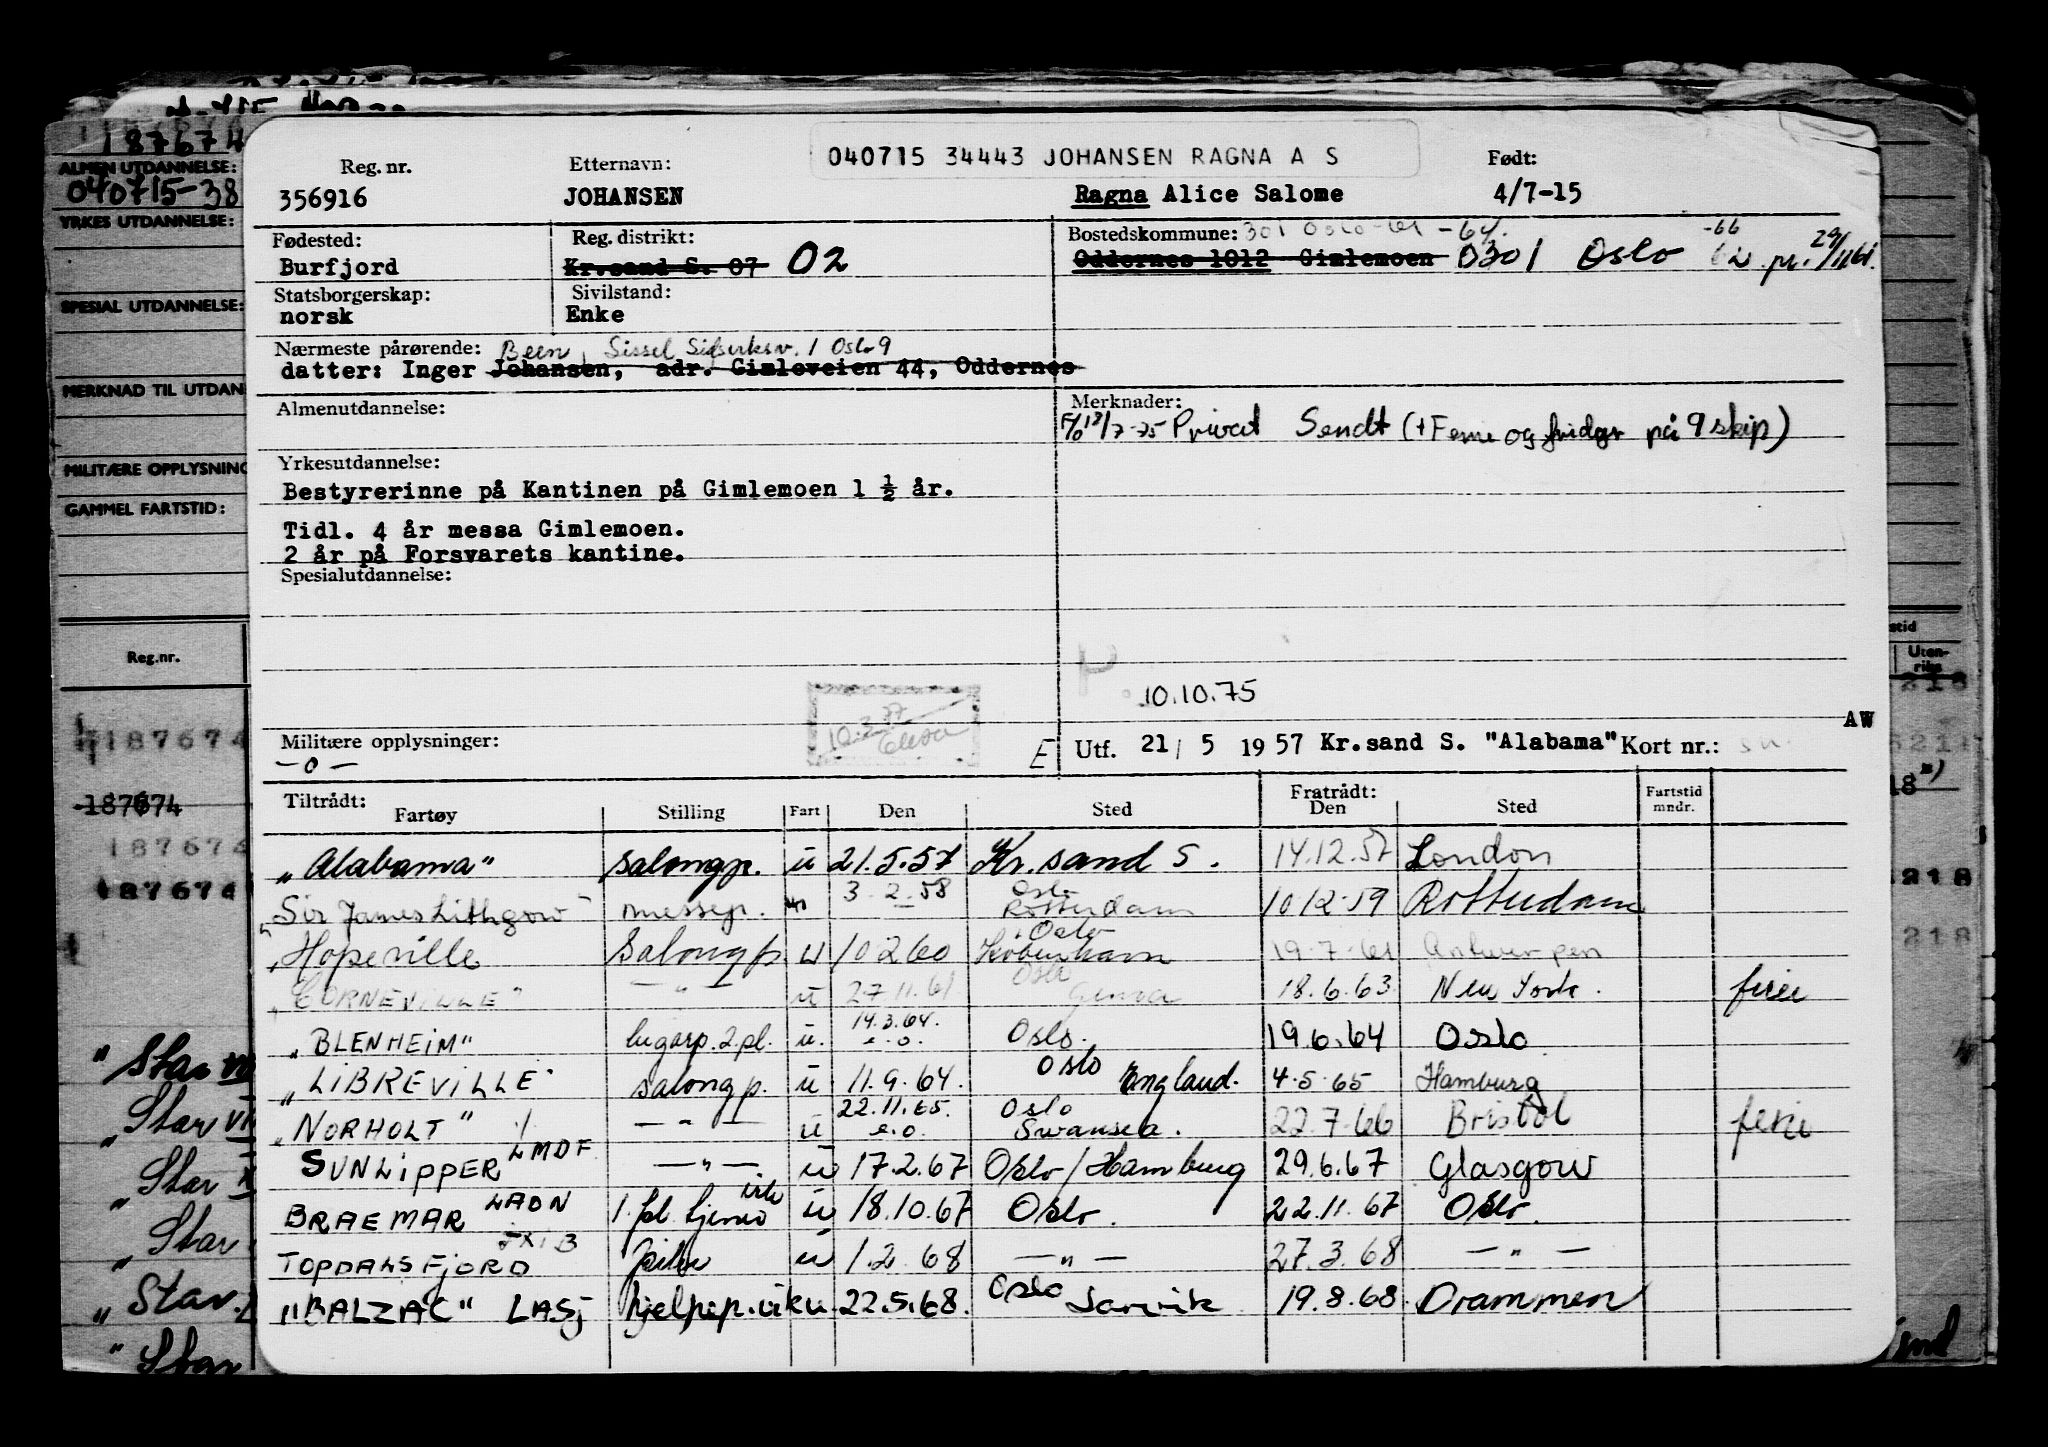 187674
ALMEN UTDANNELSE:
040715-38
YRKES UTDANNELSE:
SPESIAL UTDANNELSE:
MERKNAD TIL UTDAN
MILITÆRE OPPLYSNING
GAMMEL FARTSTID:
Reg.nr.
187674
187674
187674
187674
"Star
"Star
"Star
"Star
"Star
"Star
040715 34443 JOHANSEN RAGNA A S
Reg. nr. Etternavn: Født:
356916 JOHANSEN Ragna Alice Salome 4/7-15
Fødested: Reg. distrikt: Bostedskommune: 301 Oslo-61 -64. -66
Burfjord Kr.sand S. 07 02 Oddernes 1012 Gimlemoen 0301 Oslo 62 pr. 29/11 61.
Statsborgerskap: Sivilstand:
norsk Enke
Nærmeste pårørende: Been, Sissel Sigurds v. 1 Oslo 9
datter: Inger Johansen, adr. Gimleveien 44, Oddernes
Almenutdannelse: Merknader:
Privat Sendt (+ Ferie og fridgr på 9 skip)
Yrkesutdannelse:
Bestyrerinne på Kantinen på Gimlemoen 1 ½ år.
Tidl. 4 år messa Gimlemoen.
2 år på Forsvarets kantine.
Spesialutdannelse:
10.10.75
AW
Militære opplysninger:
- 0 -
E Utf. 21/5 1957 Kr.sand S. "Alabama" Kort nr.:
Tiltrådt: Fratrådt:
Fartøy Stilling Fart Den Sted Den Sted Fartstid mndr.
"Alabama" salongp. u 21.5.57 Kr.sand S. 14.12.57 London
"Sir James Lithgow" messep. u 3.2.58 Oslo Rotterdam 10 12 59 Rotterdam
"Hopeville salongp u 10 2 60 Oslo København 19.7.61 Antwerpen
"CORNEVILLE" - " - u 27.11.61 Oslo Genova 18.6.63 New York. ferie
"BLENHEIM" lugarp. 2 pl. u. 14.3.64. e.o. Oslo. 19.6.64 Oslo
"LIBREVILLE" salongp. u 11.9.64. Oslo England. 4.5.65 Hamburg
"NORHOLT" - " - u 22.11.65. e.o. Oslo Swansea. 22.7.66 Bristol ferie
SUNLIPPER LMDF - " - u 17.2.67 Oslo/Hamburg 29.6.67 Glasgow
BRAEMAR LADN 1. pl. tjener vik u 18.10.67 Oslo. 22.11.67 Oslo.
TOPDALSFJORD u 1.2.68 - " - 27.3.68 - " -
"BALZAC" LASJ hjelpep. vik u 22.5.68. Oslo Larvik 19.8.68 Drammen
stid
Uten-
riks
218
218
218